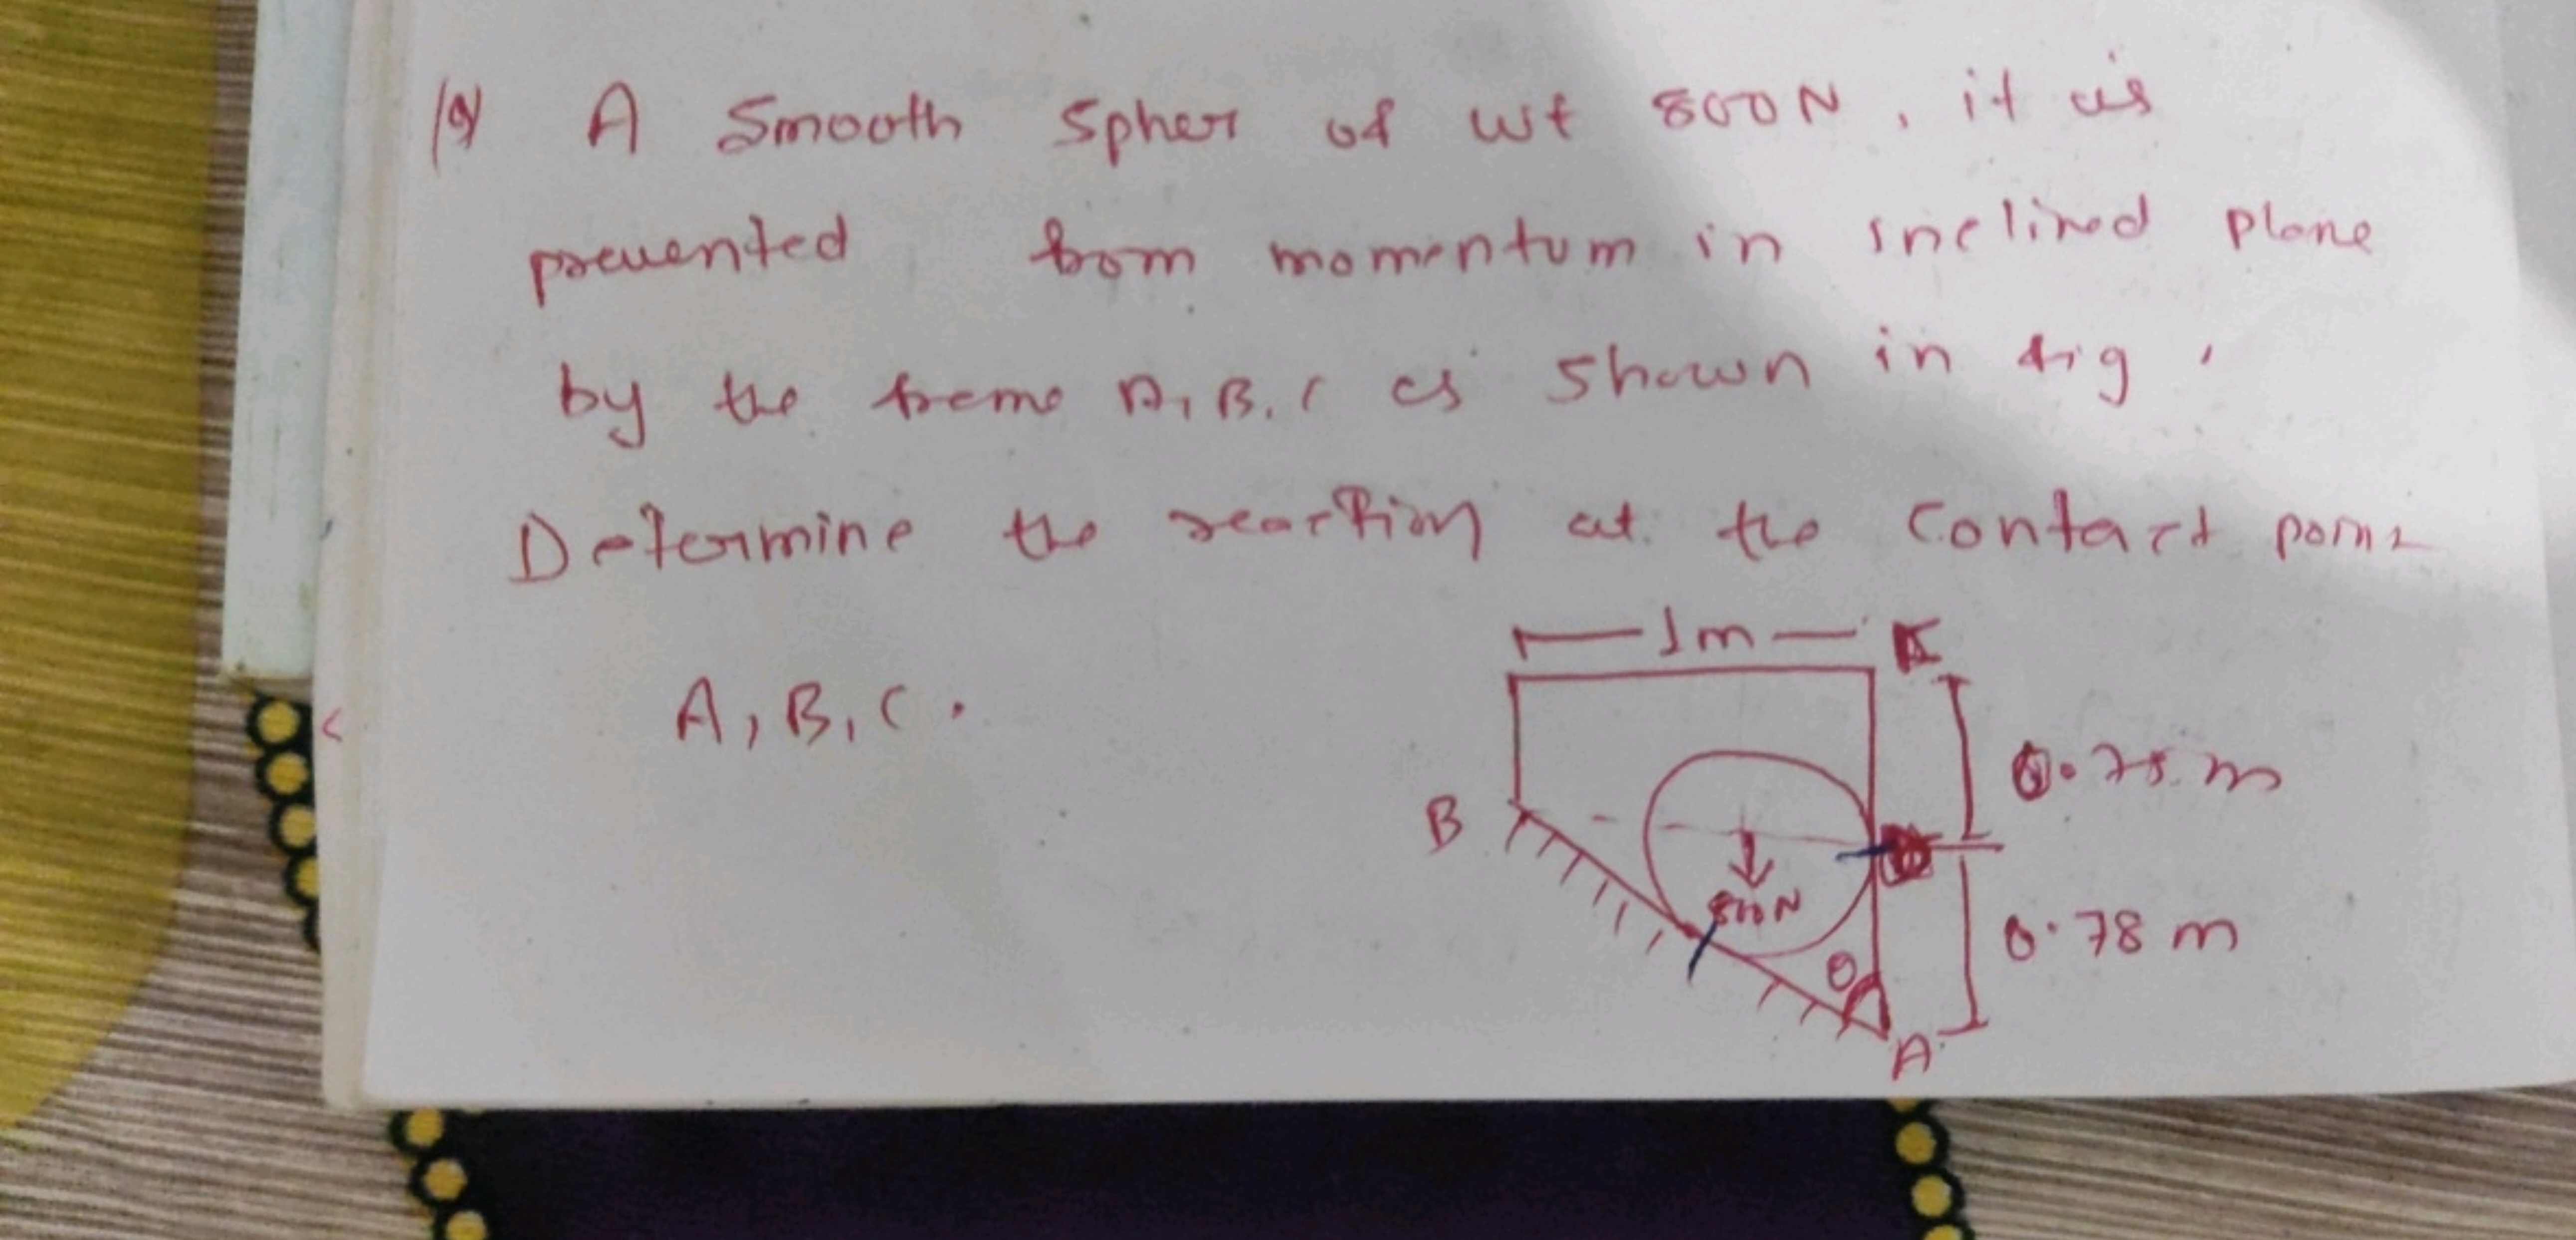 A Smooth Spher of wt 800N, it is
prevented from momentum in inclined plane
by the freme A, B, C as shown in fig,
Determine the reaction at the contact point
A, B, C.
1m
0.75 m
B
800N
0.78 m
θ
A